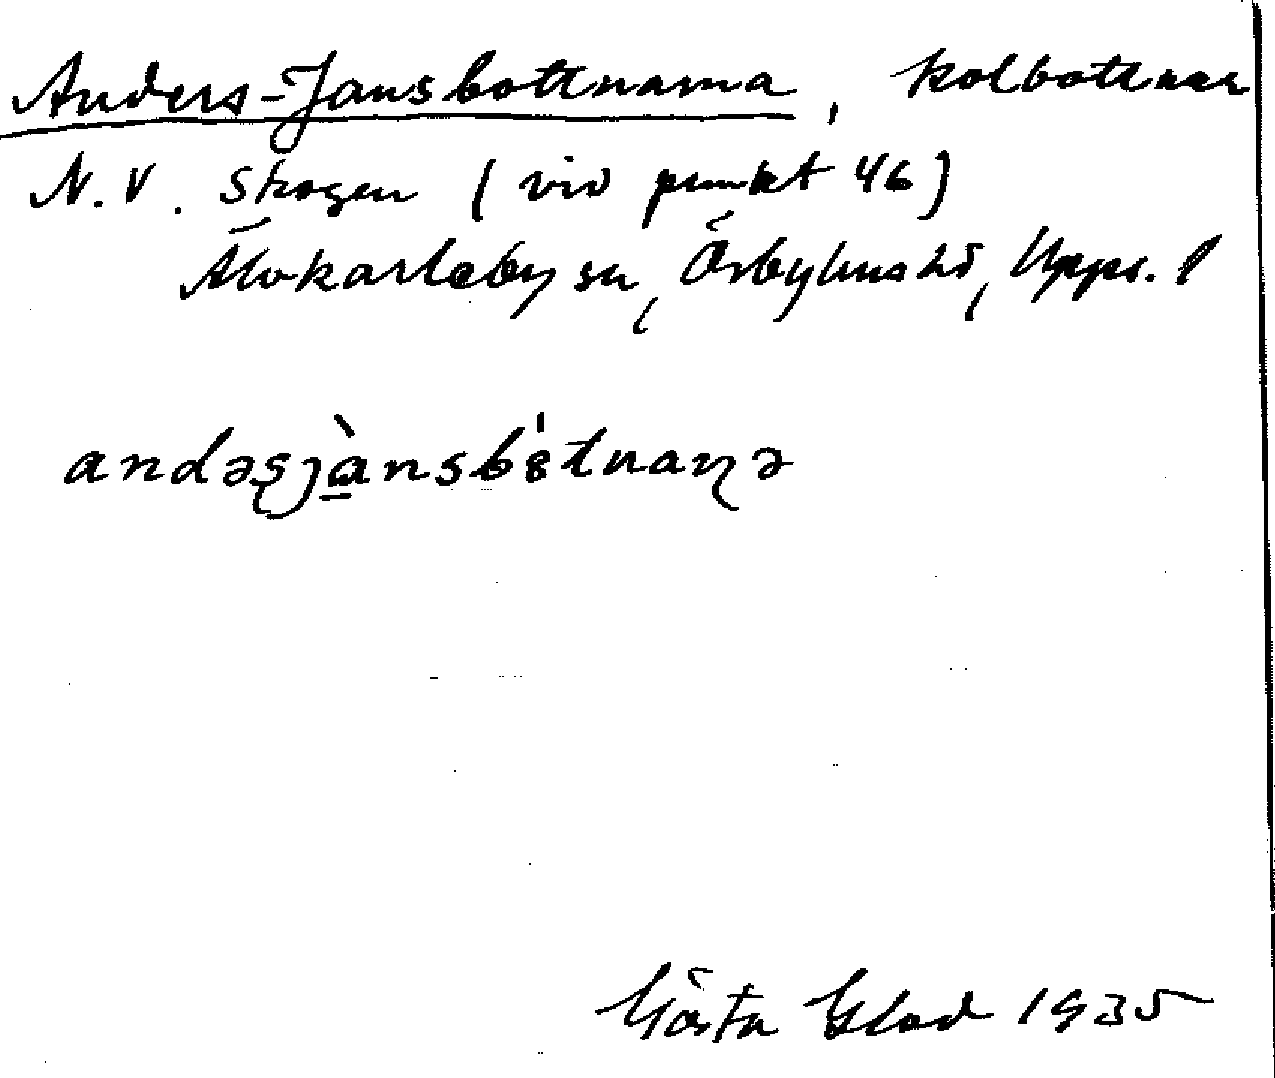 Anders-Jansbottnarna, kolbottnar
N.V. skogen (vid punkt 46)
Älvkarleby sn, Örbyhus hd, Upps. l
andəʂjànsbòtnaɳə
Gösta Glad 1935